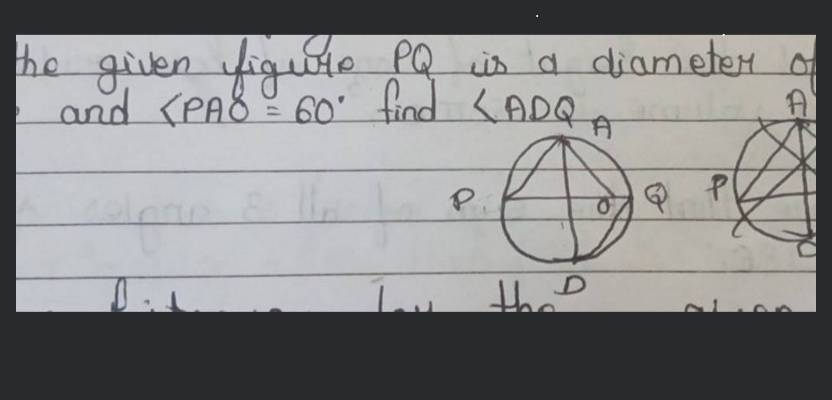 he given figure PQ is a diameter of
and <PAO = 60° find <ADQ
A
A
P
O
Q
P
D
the